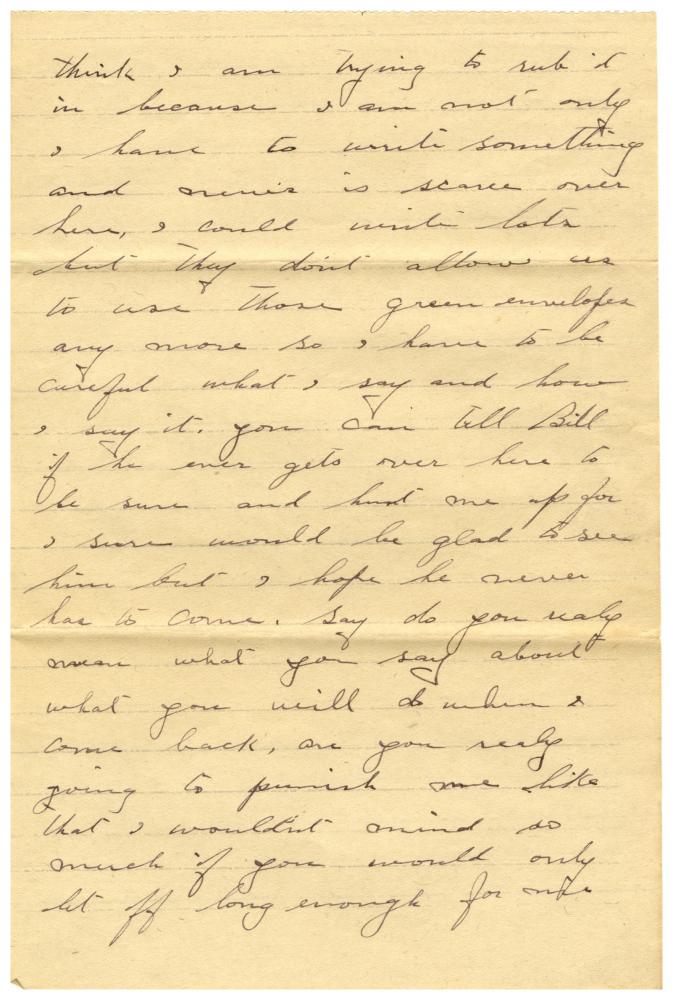 think I am trying to rub it
in because I am not only
I have to write something
and news is scarce over
here, I could write lots
but they don't allow us
to use those green envelopes
any more so I have to be
careful what I say and how
I say it. you can tell Bill
if he ever gets over here to
be sure and hunt me up for
I sure would be glad to see
him but I hope he never
has to come. say do you realy
mean what you say about
what you will do when I
come back, are you realy
going to punish me like
that I wouldn't mind so
much if you would only
let off long enough for me